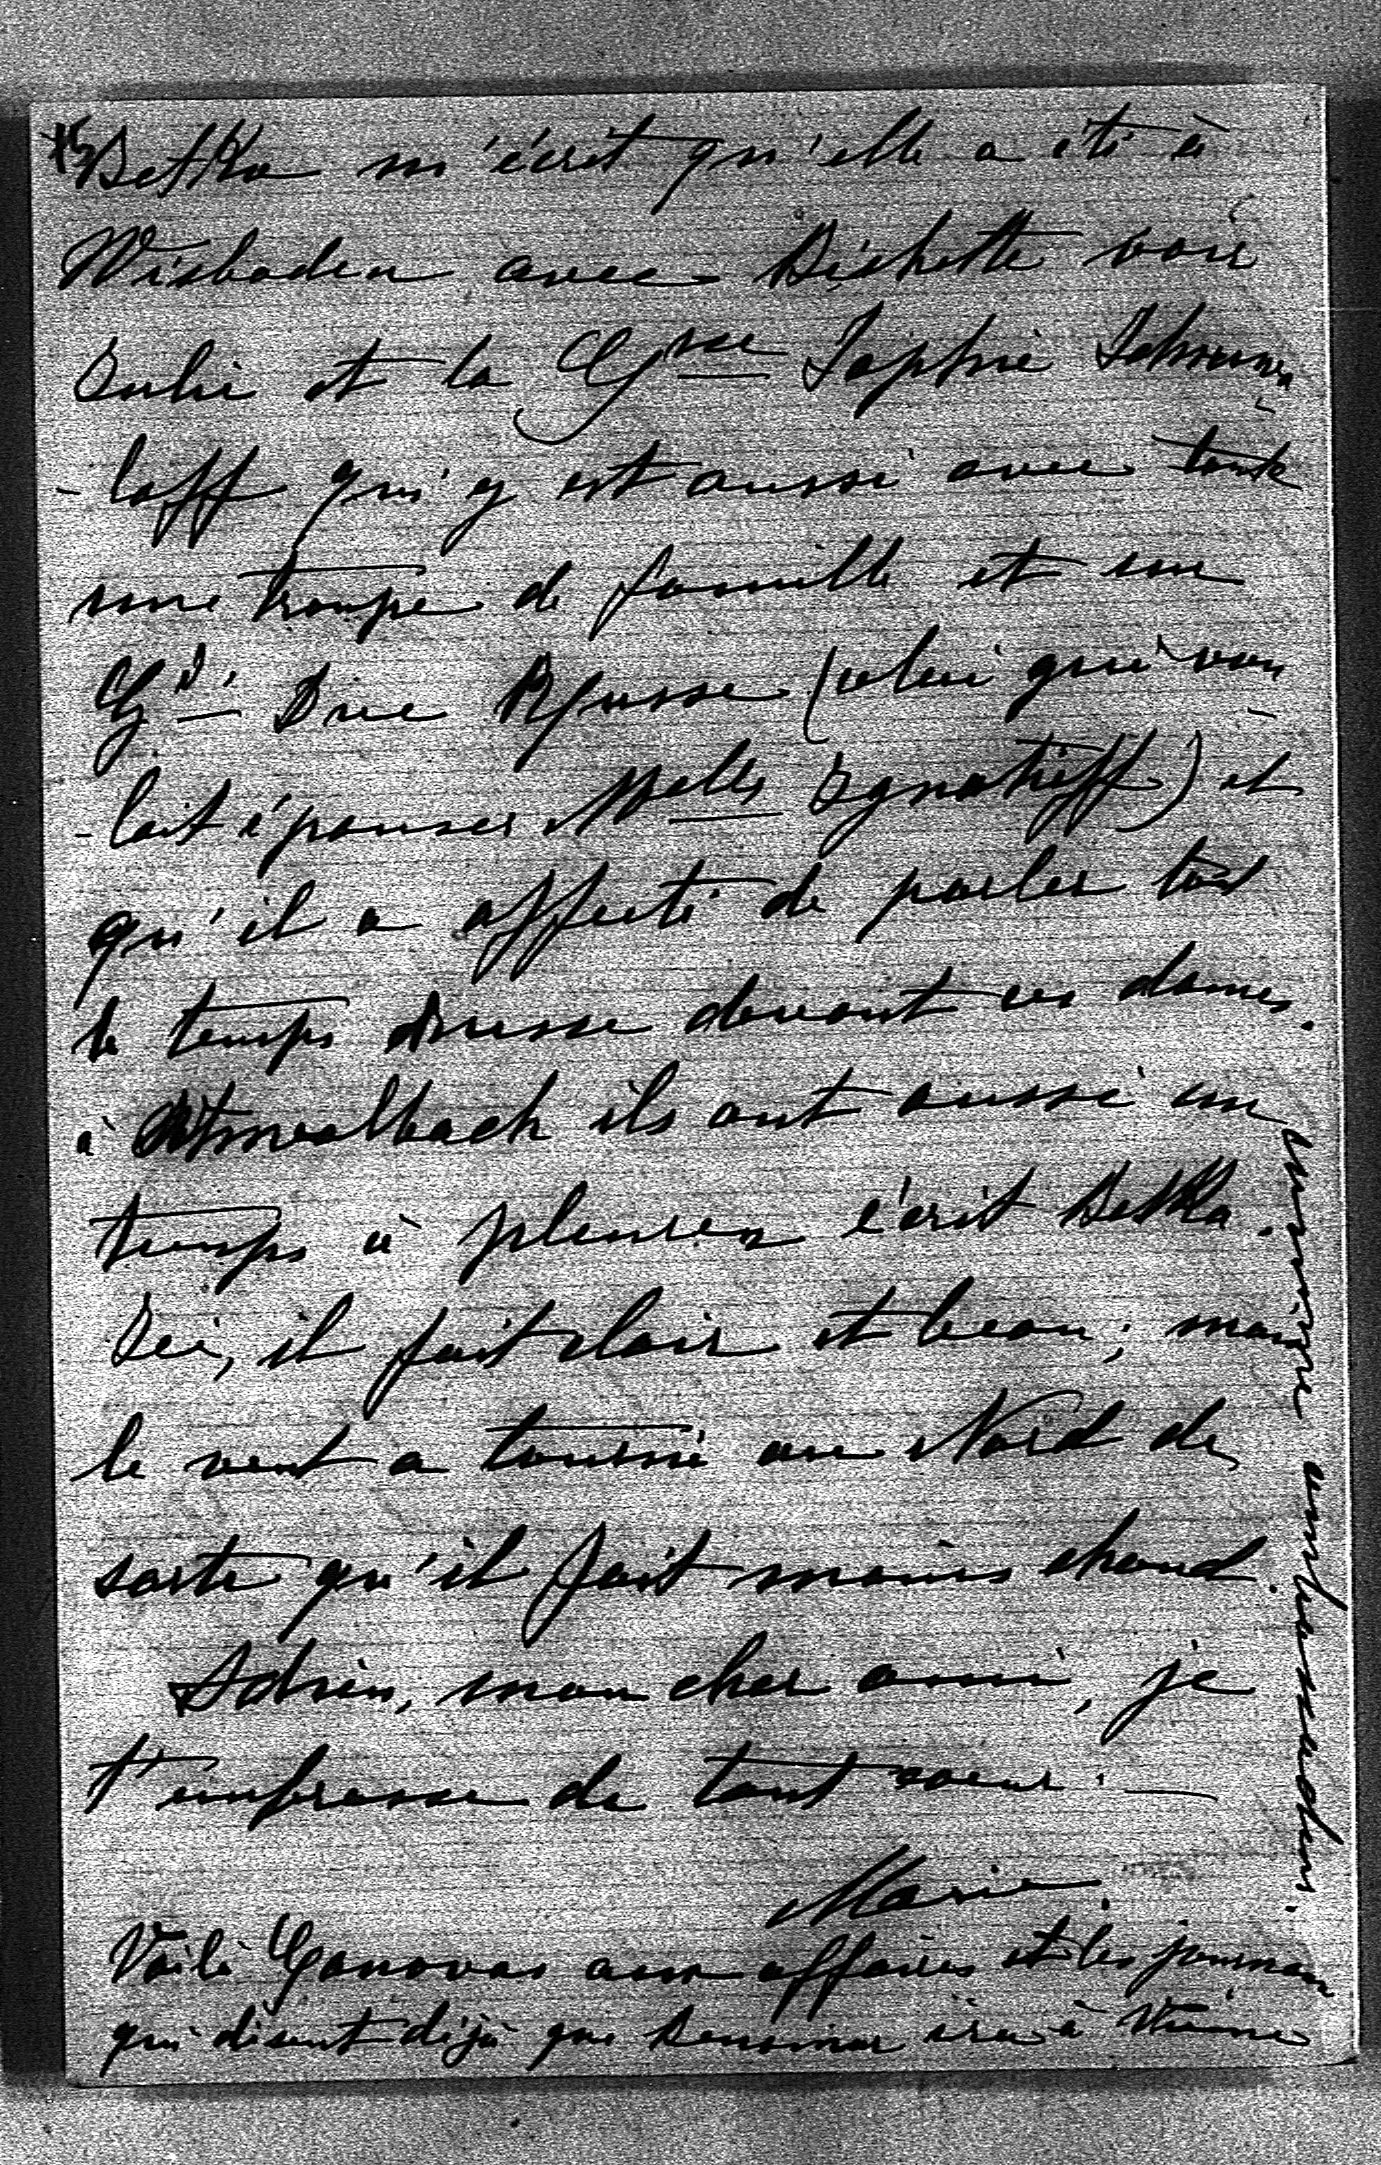 Betka m'écrit qu'elle a été à
Wisbaden avec Bichette voir
Julie et la Csse Sophie Schouwa
-loff qui y est aussi avec toute
une troupe de famille et un
Gd. Duc Russe (celui qui vou
-lait épouser Melle Ignatieff) et
qu'il a affecté de parler tout
le temps Russe devant ces dames.
à Schwalbach ils ont aussi un
temps à pleurer écrit Betka.
Ici, il fait clair et beau; mais
le vent a tourné au Nord de
sorte qu'il fait moins chaud.
Adrien, mon cher ami, je
t'embrasse de tout coeur. —
Marie.
Voilà Canovas aux affaires et les journaux
qui disent déjà que Benomar ira à Vienne
comme ambassadeur.